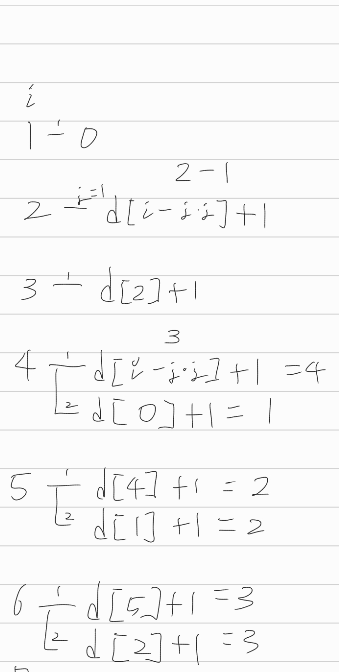 i
1 1 0
2-1
2 j=1 d[i-j·j]+1
3 1 d[2]+1
3
4 1 d[i-j·j]+1 =4
2 d[0]+1= 1
5 1 d[4]+1 = 2
2 d[1]+1=2
6 1 d[5]+1 =3
2 d[2]+1 =3